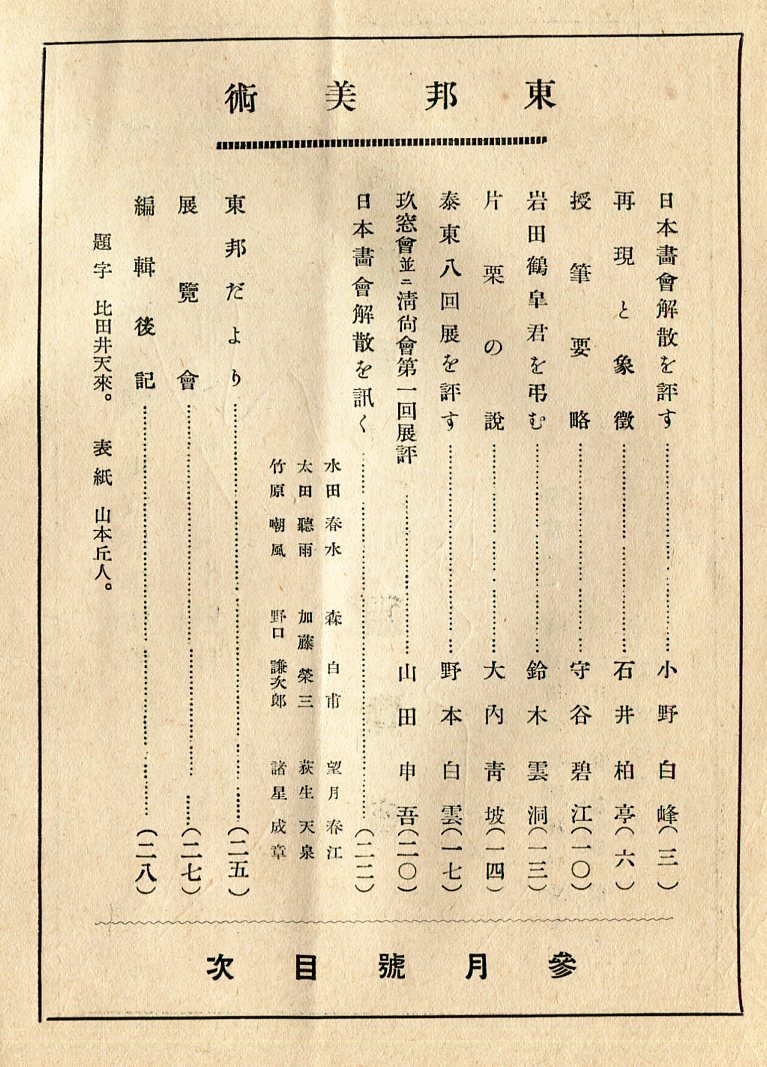 東邦美術
日本畵會解散を評す………小野白峰(三)
再現と象徴………石井柏亭(六)
授筆要略………守谷碧江(一〇)
岩田鶴皐君を弔む………鈴木雲洞(一三)
片栗の說………大內靑坡(一四)
泰東八回展を評す………野本白雲(一七)
玖窓會並ニ淸尙會第一回展評………山田申吾(二〇)
日本畵會解散を訊く………(二二)
水田春水 森白甫 望月春江
太田聽雨 加藤榮三 荻生天泉
竹原嘲風 野口謙次郎 諸星成章
東邦だより………(二五)
展覽會………(二七)
編輯後記………(二八)
題字 比田井天來。 表紙 山本丘人。
參月號目次